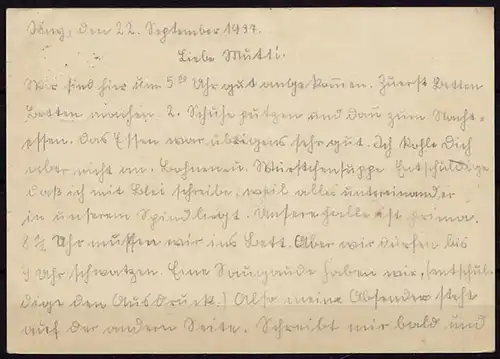 den 22. September 1937.
Liebe Mutti.
Wir sind hier um 5 00 Uhr gut angekommen. Zuerst Betten
Betten machen. 2. Schuhe putzen und dan zum Nacht-
essen. Das Essen war übrigens sehr gut. Ich kohle Dich
aber nicht an. Bohnen u. Würstchensuppe. Entschuldige
daß ich mit Blei schreibe, weil alles untereinander
in unserem Spind liegt. Unsere Halle ist prima.
8 ½ Uhr mußen wir ins Bett. Aber wir dürfen bis
9 Uhr schwatzen. Eine Saugaude haben wir, (entschul-
dige den Ausdruck.) Also meine Absender steht
auf der anderen Seite. Schreibt mir bald und